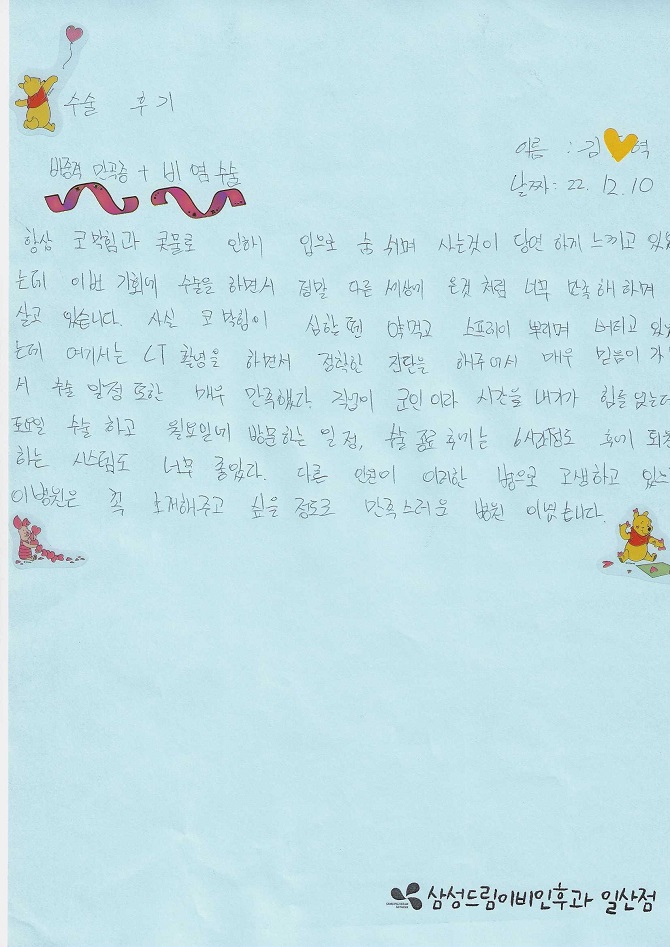 수술 후기
이름 : 김 혁
날짜 : 22. 12. 10
비중격 만곡증 + 비염 수술
항상 코막힘과 콧물로 인해 입으로 숨 쉬며 사는것이 당연 하게 느끼고 있었
는데 이번 기회에 수술을 하면서 정말 다른 세상에 온것 처럼 너무 만족해 하며
살고 있습니다. 사실 코막힘이 심할땐 약먹고 스프레이 뿌리며 버티고 있었
는데 여기서는 CT 촬영을 하면서 정확한 진단을 해주어서 매우 믿음이 가
서 수술 일정 또한 매우 만족했다. 직업이 군인 이라 시간을 내기가 힘들었는데
토요일 수술 하고 월요일에 방문하는 일정, 수술 종료 후에는 6시간정도 후에 퇴원
하는 시스템도 너무 좋았다. 다른 인원이 이러한 병으로 고생하고 있으
이병원은 꼭 소개해주고 싶을 정도로 만족스러운 병원 이었습니다.
삼성드림이비인후과 일산점